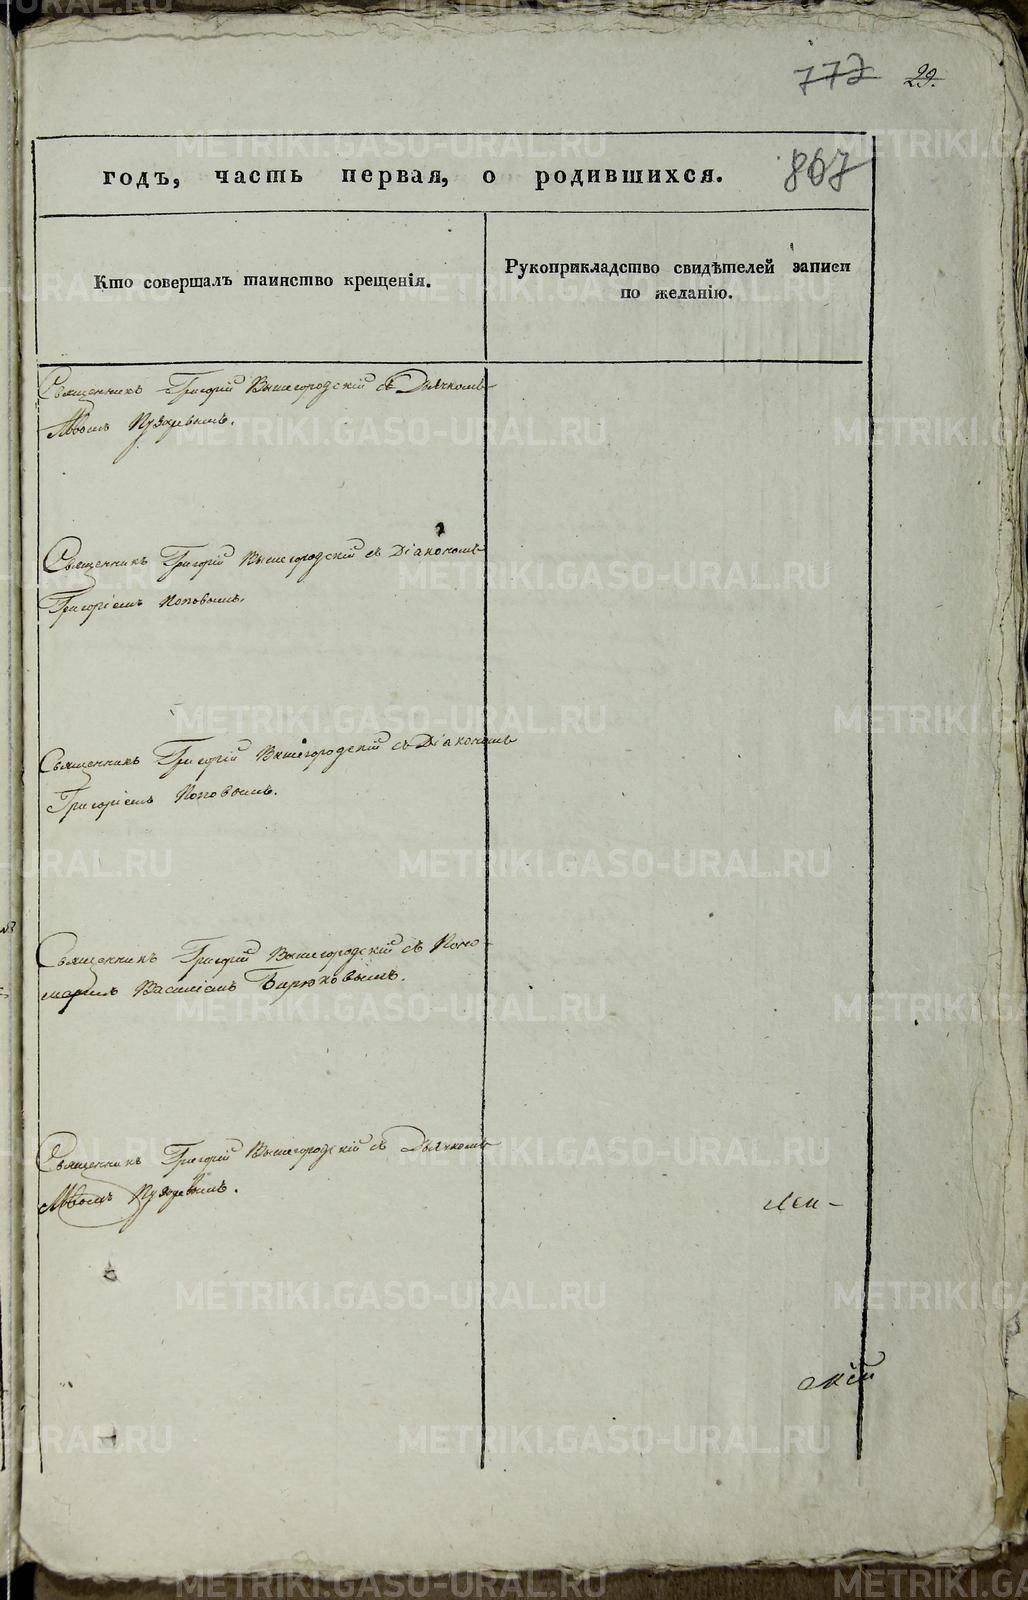 777 29.
годъ, часть первая, о родившихся. 807
Кто совершалъ таинство крещенія.
Рукоприкладство свидѣтелей записи
по желанію.
Священникъ Григорій Вышегородскій съ Дьячкомъ
Львомъ Пузыревымъ.
Священникъ Григорій Вышегородскій съ Діакономъ
Григоріемъ Поповымъ.
Священникъ Григорій Вышегородскій съ Діакономъ
Григоріемъ Поповымъ.
Священникъ Григорій Вышегородскій съ Поно-
маремъ Василіемъ Бирюковымъ.
Священникъ Григорій Вышегородскій съ Дьячкомъ
Львомъ Пузыревымъ.
METRIKI.GASO-URAL.RU